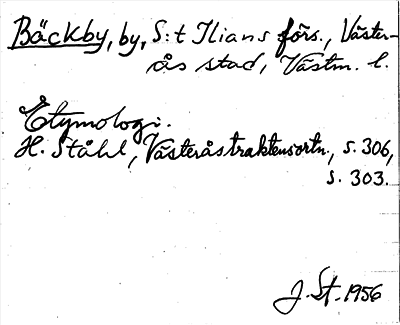 Bäckby, by, S:t Ilians förs., Väster-
ås stad, Västm. l.
Etymologi.
H. Ståhl, Västeråstraktensortn., s. 306,
s. 303.
J. St. 1956